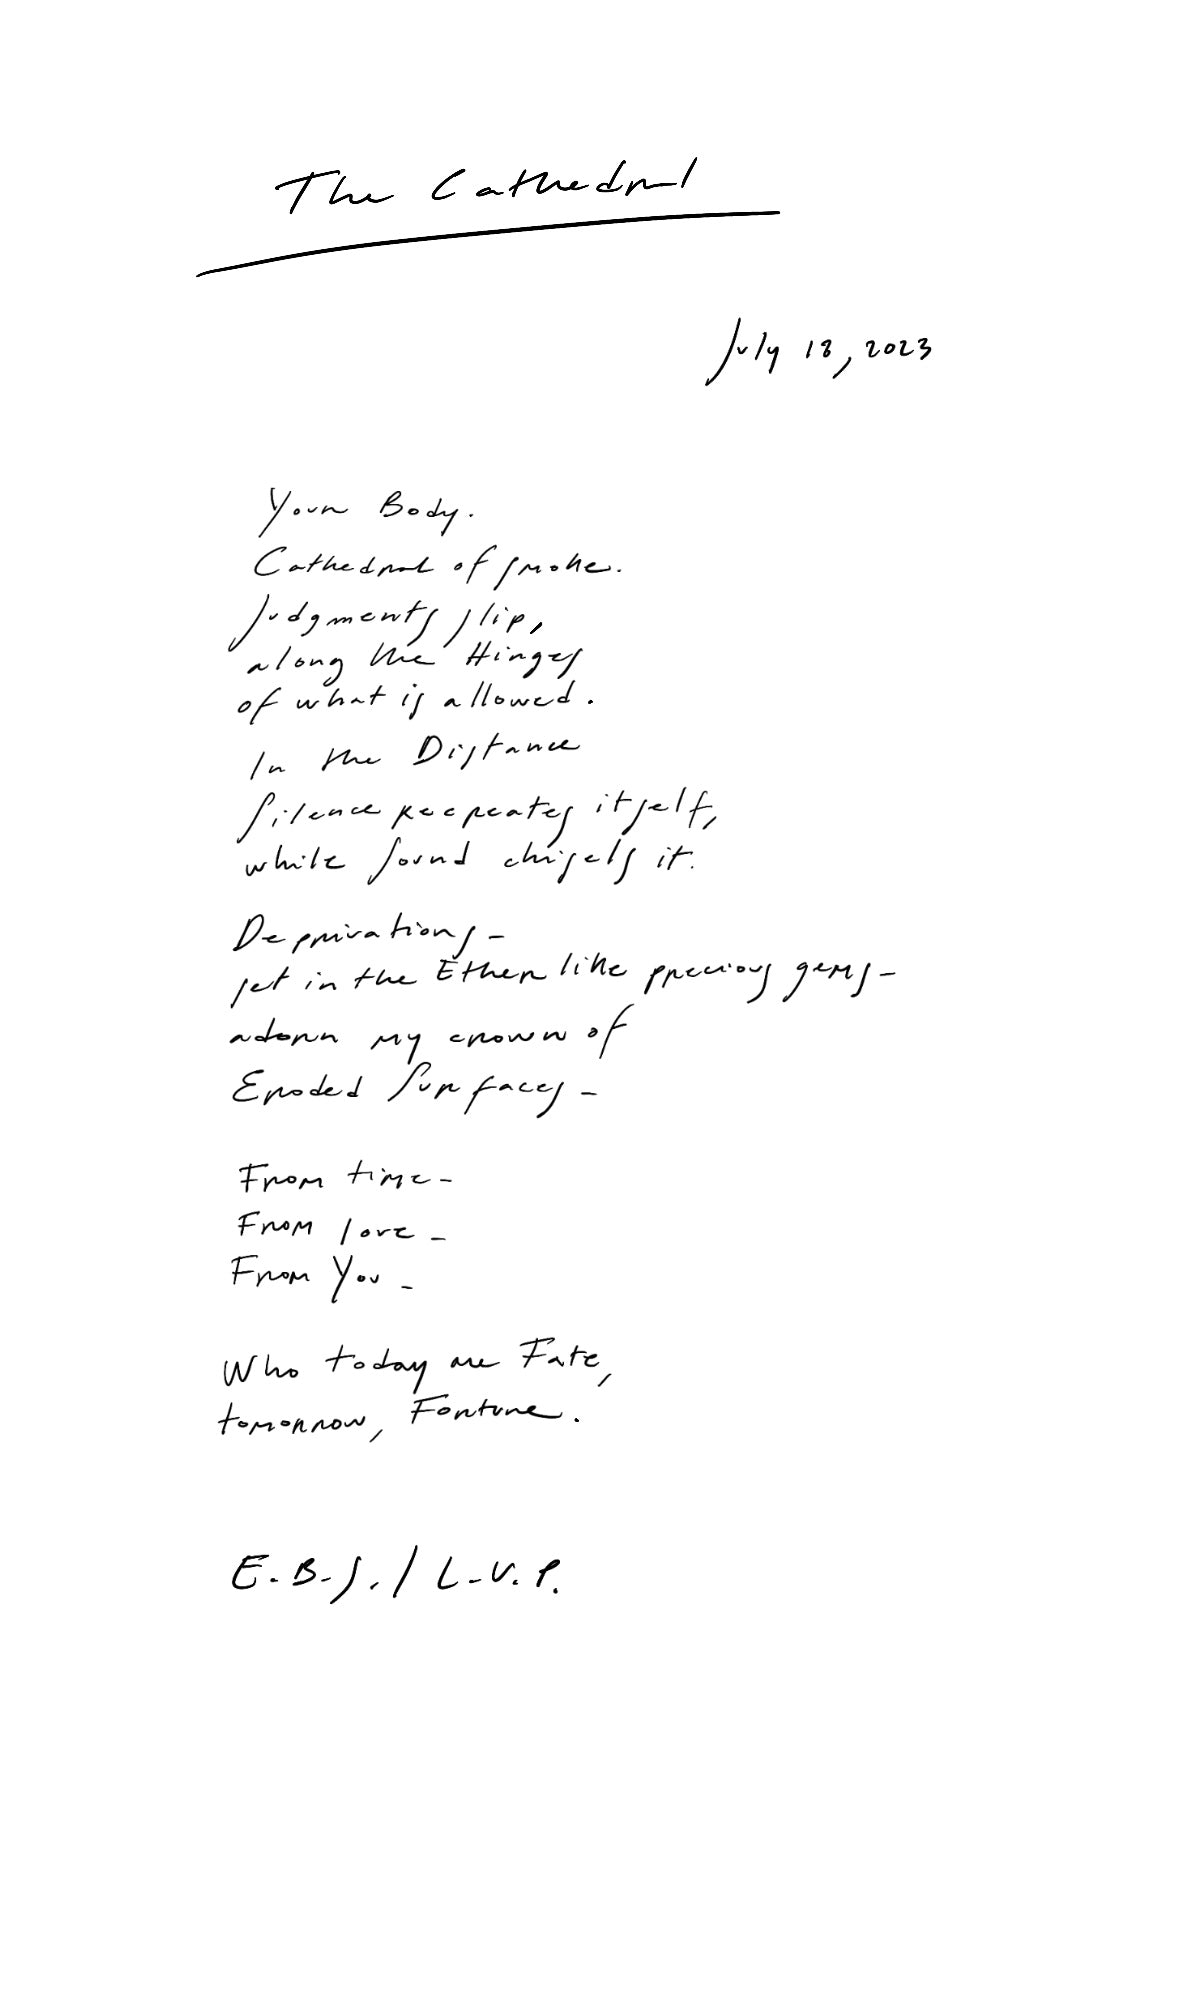 The Cathedral
July 18, 2023
Your Body.
Cathedral of smoke.
Judgments slip,
along the Hinges
of what is allowed.
In the Distance
Silence recreates itself,
while Sound chisels it.
Deprivations -
set in the Ether like precious gems -
adorn my crown of
Eroded Surfaces -
From time -
From love -
From You -
Who today are Fate,
tomorrow, Fortune.
E.B.J. / L.V.P.